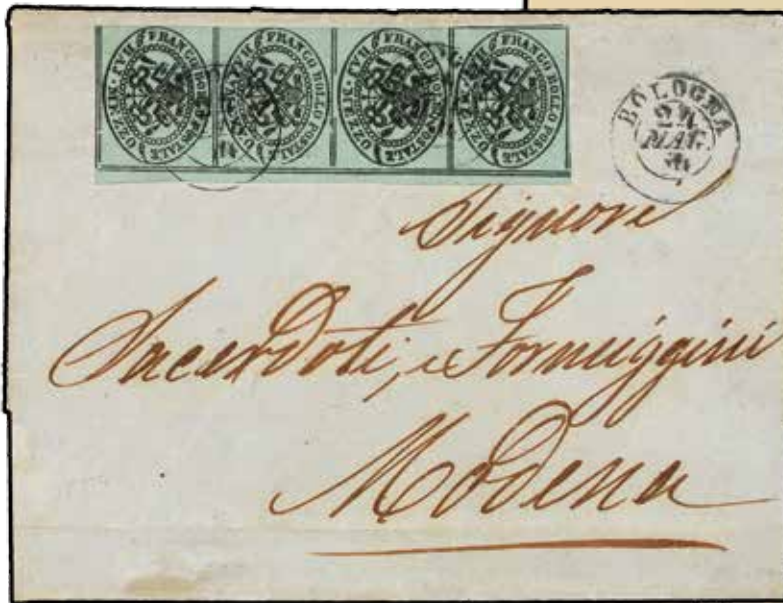 FRANCO BOLLO POSTALE MEZZO BAJ
FRANCO BOLLO POSTALE MEZZO BAJ
FRANCO BOLLO POSTALE MEZZO BAJ
FRANCO BOLLO POSTALE MEZZO BAJ
BOLOGNA
24
MAG
Signori
Sacerdoti, e Formiggini
Modena